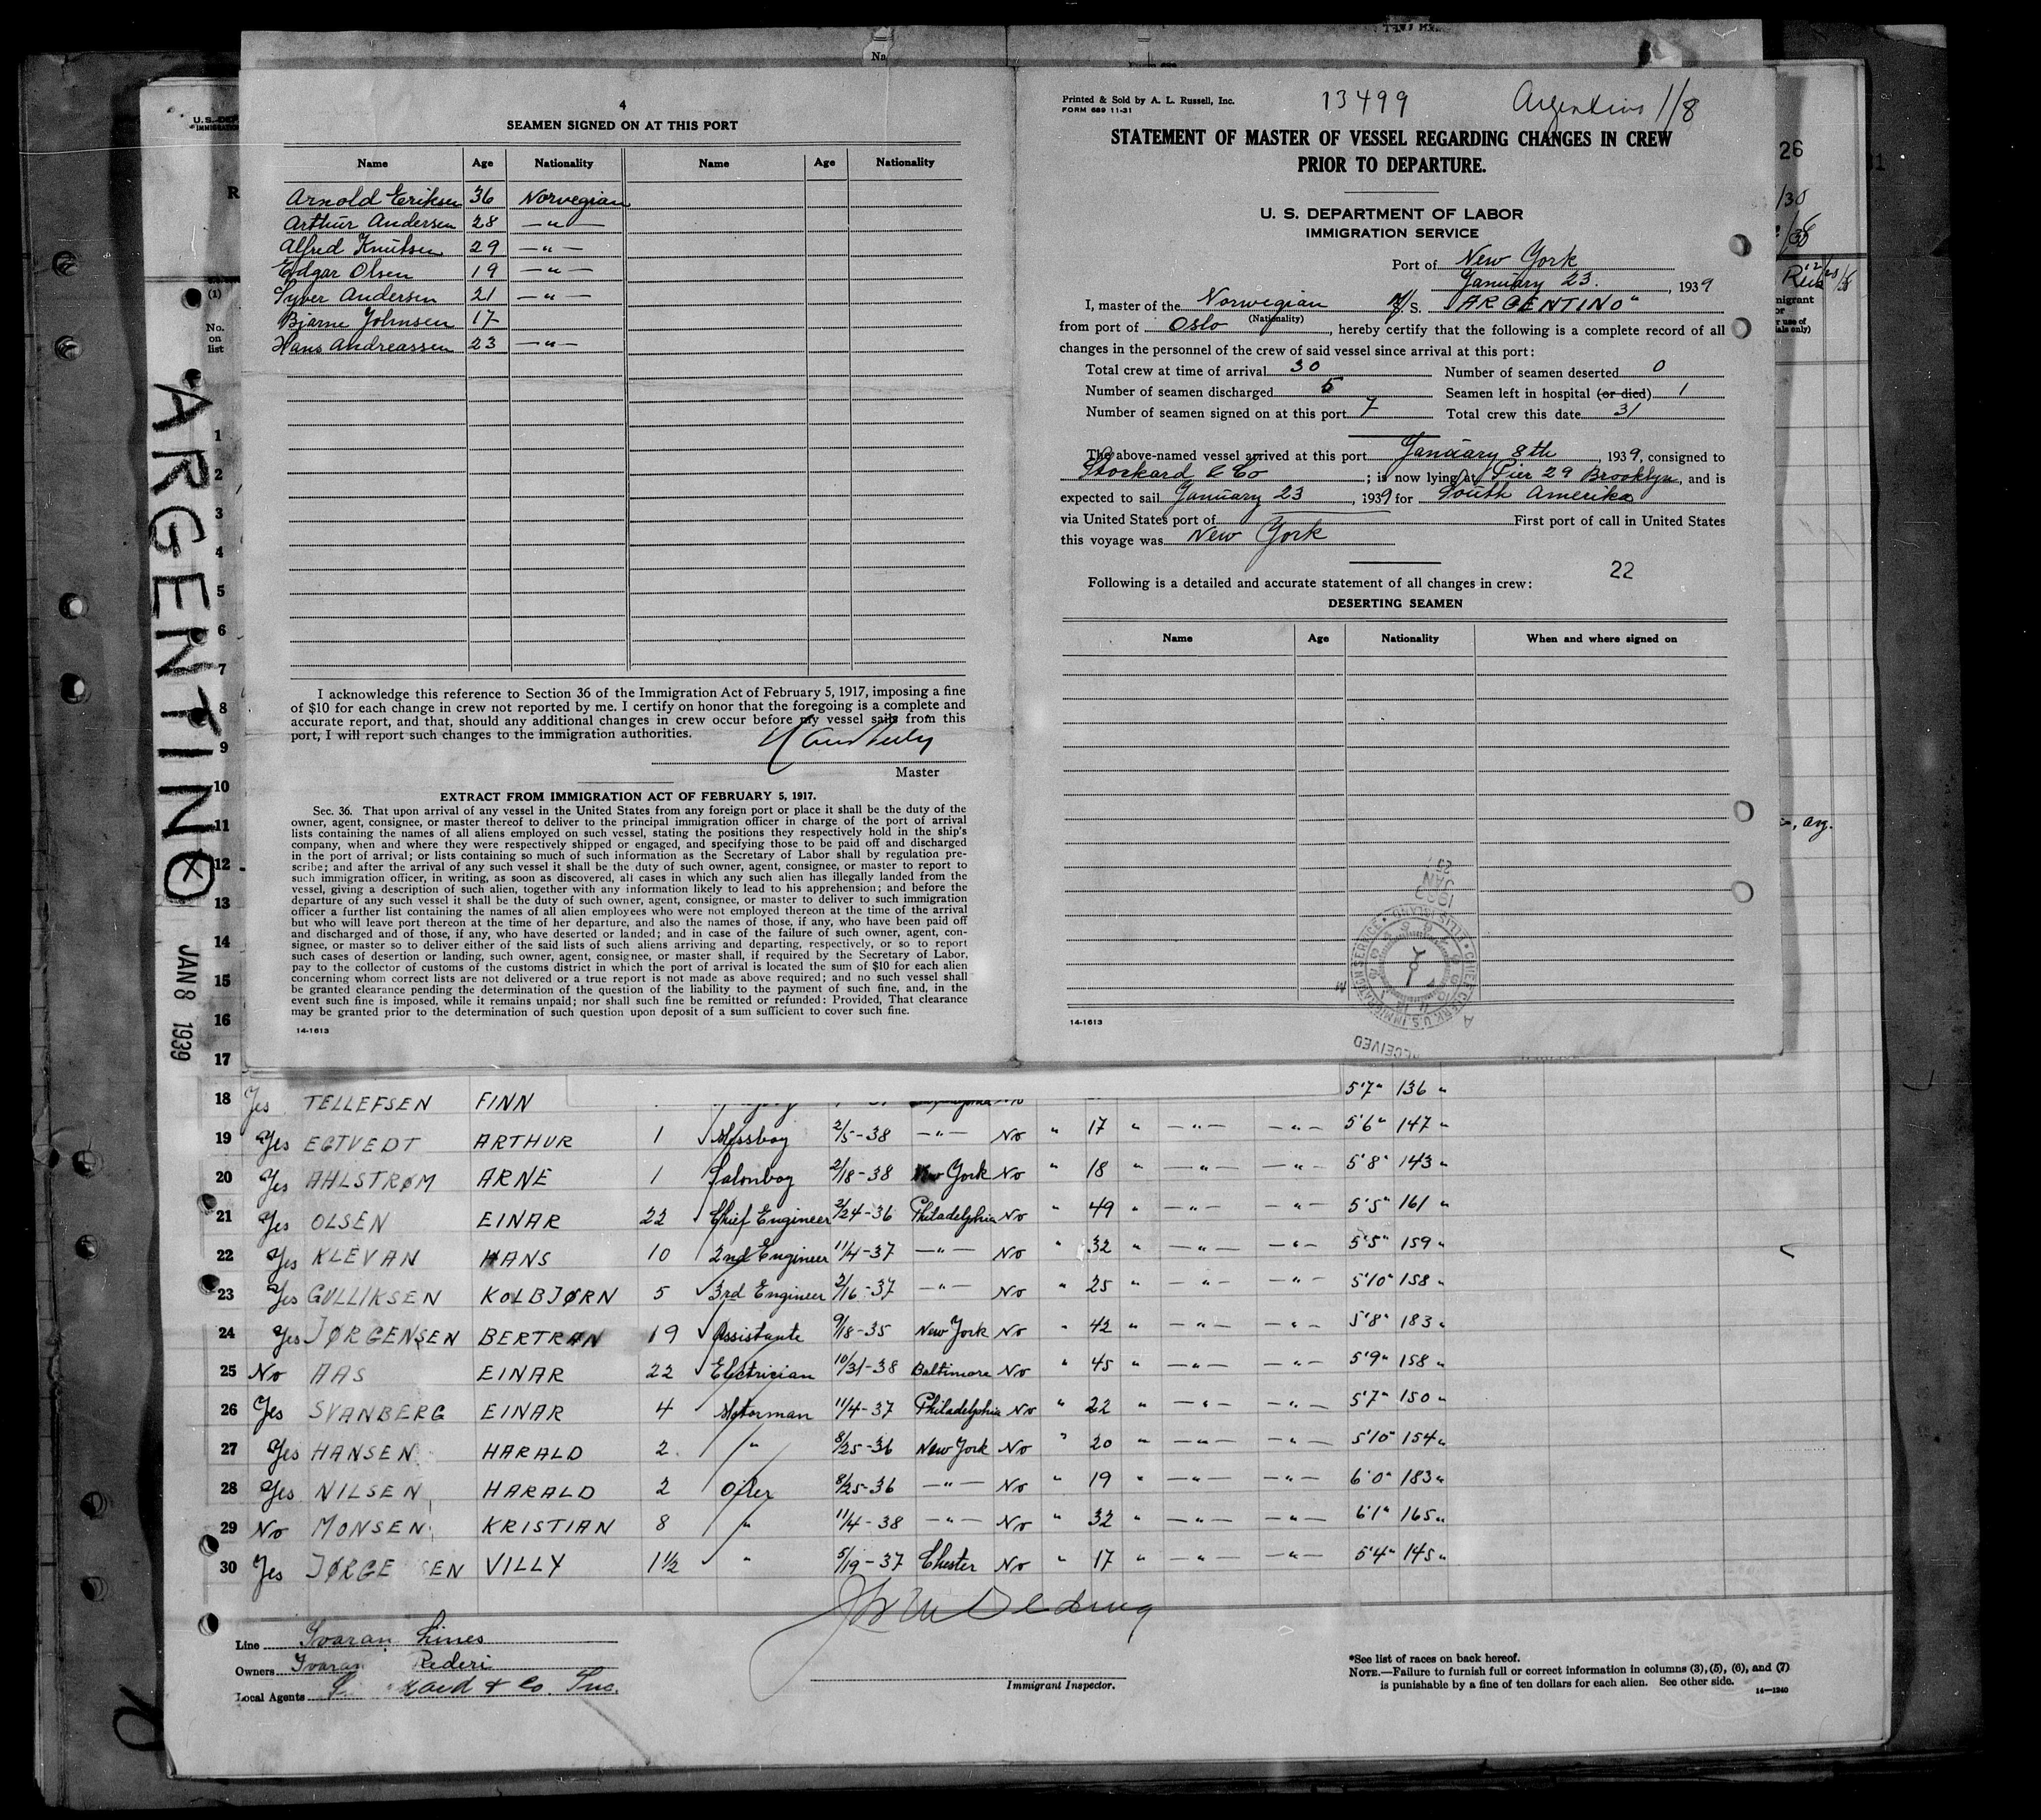 4
SEAMEN SIGNED ON AT THIS PORT
Name Age Nationality Name Age Nationality
Arnold Eriksen 36 Norwegian
Arthur Andersen 28 —"—
Alfred Knutsen 29 —"—
Edgar Olsen 19 —"—
Syver Andersen 21 —"—
Bjarne Johnsen 17
Hans Andreassen 23 —"—
I acknowledge this reference to Section 36 of the Immigration Act of February 5, 1917, imposing a fine
of $10 for each change in crew not reported by me. I certify on honor that the foregoing is a complete and
accurate report, and that, should any additional changes in crew occur before my vessel sails from this
port, I will report such changes to the immigration authorities.
Master
EXTRACT FROM IMMIGRATION ACT OF FEBRUARY 5, 1917.
Sec. 36. That upon arrival of any vessel in the United States from any foreign port or place it shall be the duty of the
owner, agent, consignee, or master thereof to deliver to the principal immigration officer in charge of the port of arrival
lists containing the names of all aliens employed on such vessel, stating the positions they respectively hold in the ship's
company, when and where they were respectively shipped or engaged, and specifying those to be paid off and discharged
in the port of arrival; or lists containing so much of such information as the Secretary of Labor shall by regulation pre-
scribe; and after the arrival of any such vessel it shall be the duty of such owner, agent, consignee, or master to report to
such immigration officer, in writing, as soon as discovered, all cases in which any such alien has illegally landed from the
vessel, giving a description of such alien, together with any information likely to lead to his apprehension; and before the
departure of any such vessel it shall be the duty of such owner, agent, consignee, or master to deliver to such immigration
officer a further list containing the names of all alien employees who were not employed thereon at the time of the arrival
but who will leave port thereon at the time of her departure, and also the names of those, if any, who have been paid off
and discharged and of those, if any, who have deserted or landed; and in case of the failure of such owner, agent, con-
signee, or master so to deliver either of the said lists of such aliens arriving and departing, respectively, or so to report
such cases of desertion or landing, such owner, agent, consignee, or master shall, if required by the Secretary of Labor,
pay to the collector of customs of the customs district in which the port of arrival is located the sum of $10 for each alien
concerning whom correct lists are not delivered or a true report is not made as above required; and no such vessel shall
be granted clearance pending the determination of the question of the liability to the payment of such fine, and, in the
event such fine is imposed, while it remains unpaid; nor shall such fine be remitted or refunded: Provided, That clearance
may be granted prior to the determination of such question upon deposit of a sum sufficient to cover such fine.
14-1613
Printed & Sold by A. L. Russell, Inc.
FORM 689 11-31
13499
Argentino 1/8
STATEMENT OF MASTER OF VESSEL REGARDING CHANGES IN CREW
PRIOR TO DEPARTURE.
U. S. DEPARTMENT OF LABOR
IMMIGRATION SERVICE
Port of New York
January 23. , 1939
I, master of the Norwegian M/S. "ARGENTINO"
(Nationality)
from port of Oslo , hereby certify that the following is a complete record of all
changes in the personnel of the crew of said vessel since arrival at this port:
Total crew at time of arrival 30 Number of seamen deserted 0
Number of seamen discharged 5 Seamen left in hospital (or died) 1
Number of seamen signed on at this port 7 Total crew this date 31
The above-named vessel arrived at this port January 8th , 1939, consigned to
Stockard & Co ; is now lying at Pier 29 Brooklyn, and is
expected to sail January 23 , 1939 for South Amerika
via United States port of First port of call in United States
this voyage was New York
22
Following is a detailed and accurate statement of all changes in crew:
DESERTING SEAMEN
Name Age Nationality When and where signed on
1939
JAN
25
CHIEF CLERK, U.S. IMMIGRATION SERVICE • ELLIS ISLAND
RECEIVED
14-1613
26
ARGENTINO
JAN 8 1939
No.
on
list
1
2
3
4
5
6
7
8
9
10
11
12
13
14
15
16
17
18 Yes TELLEFSEN FINN 5'7" 136 "
19 Yes EGTVEDT ARTHUR 1 Messboy 2/5-38 —"— No " 17 " —"— —"— 5'6" 147 "
20 Yes AHLSTRØM ARNE 1 Salonboy 2/18-38 New York No " 18 " —"— —"— 5'8" 143 "
21 Yes OLSEN EINAR 22 Chief Engineer 2/24-36 Philadelphia No " 49 " —"— —"— 5'5" 161 "
22 Yes KLEVAN HANS 10 2nd Engineer 11/4-37 —"— No " 32 " —"— —"— 5'5" 159 "
23 Yes GULLIKSEN KOLBJØRN 5 3rd Engineer 2/16-37 —"— No " 25 " —"— —"— 5'10" 158 "
24 Yes JØRGENSEN BERTRAN 19 Assistante 9/18-35 New York No " 42 " —"— —"— 5'8" 183 "
25 No AAS EINAR 22 Electrician 10/31-38 Baltimore No " 45 " —"— —"— 5'9" 158 "
26 Yes SVANBERG EINAR 4 Motorman 11/4-37 Philadelphia No " 22 " —"— —"— 5'7" 150 "
27 Yes HANSEN HARALD 2 " 8/25-36 New York No " 20 " —"— —"— 5'10" 154 "
28 Yes NILSEN HARALD 2 Oiler 8/25-36 —"— No " 19 " —"— —"— 6'0" 183 "
29 No MONSEN KRISTIAN 8 " 11/4-38 —"— No " 32 " —"— —"— 6'1" 165 "
30 Yes JØRGE SEN VILLY 1½ " 5/19-37 Chester No " 17 " —"— —"— 5'4" 145 "
Line Ivaran Lines
Owners Ivaran Rederi
Local Agents & Co. Inc.
Immigrant Inspector.
*See list of races on back hereof.
NOTE.—Failure to furnish full or correct information in columns (3), (5), (6), and (7)
is punishable by a fine of ten dollars for each alien. See other side.
14—1240